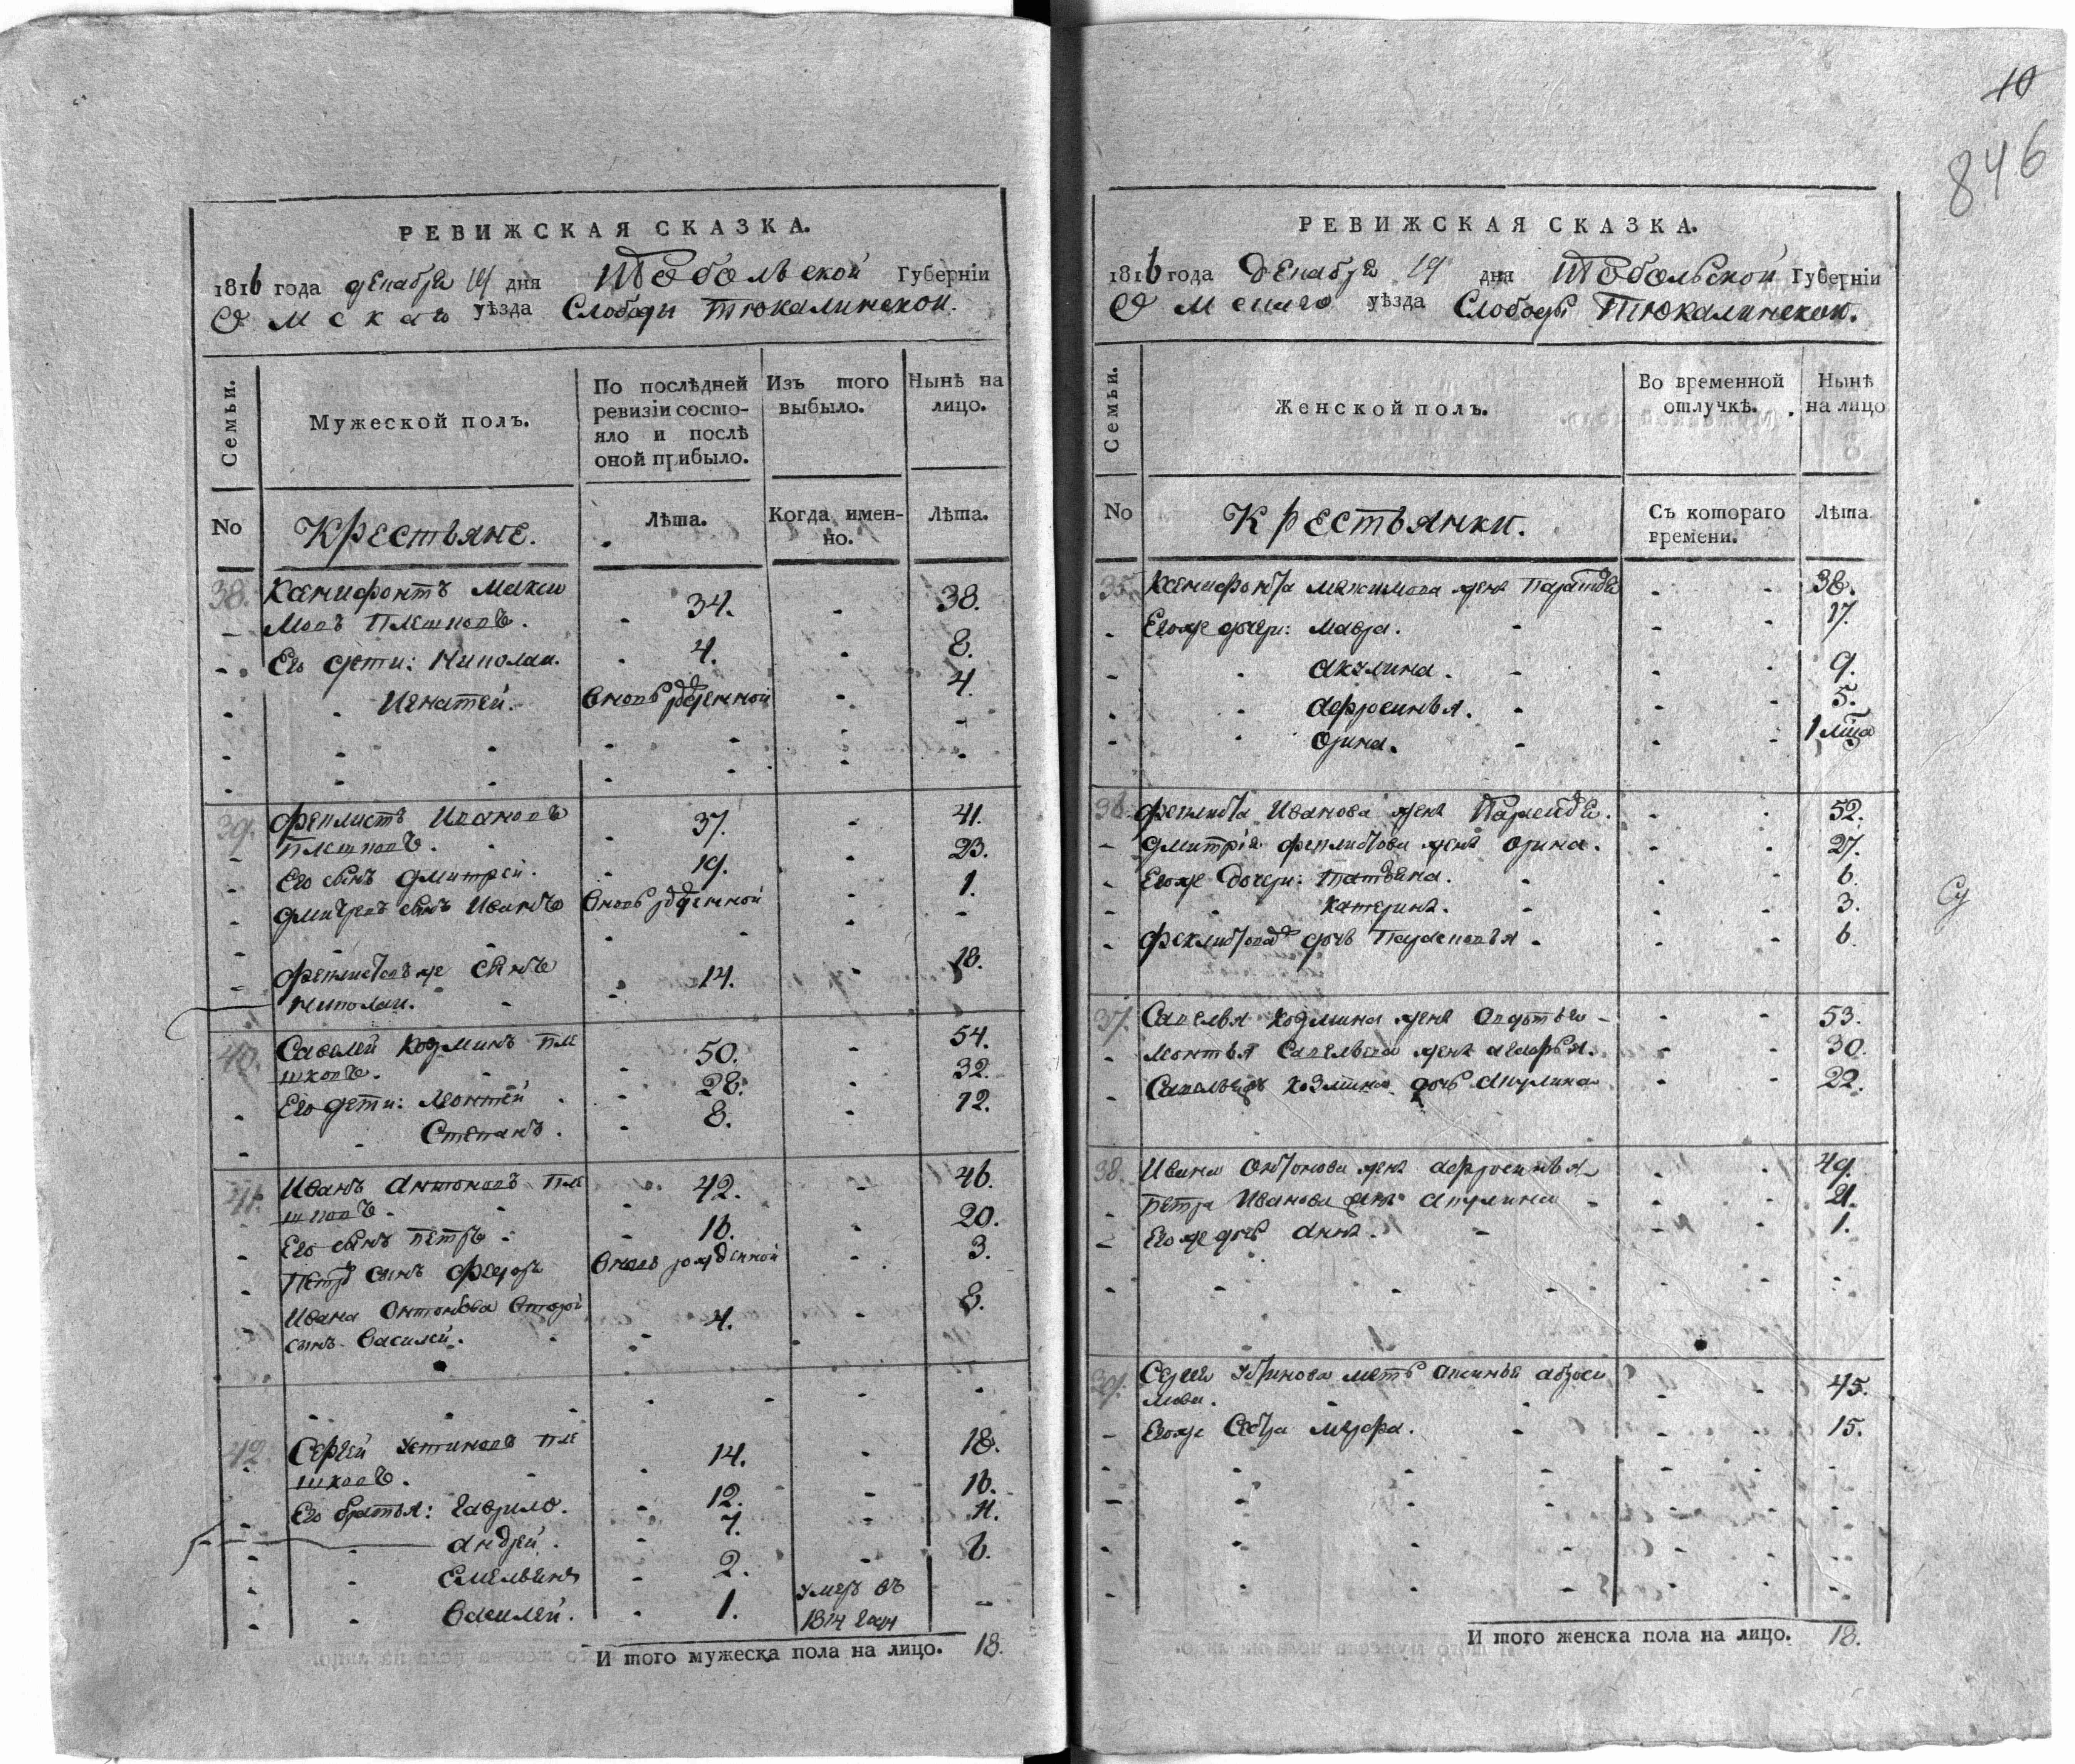 РЕВИЖСКАЯ СКАЗКА.
1816 года декабря 19 дня Тобольской Губернїи
Омскаго уѣзда Слободы Тюкалинской.
Семьи.
Мужеской полъ.
По послѣдней ревизїи состояло и послѣ оной прибыло.
Изъ того выбыло.
Нынѣ на лицо.
No
Крестьяне.
Лѣта.
Когда имен-
но.
Лѣта.
38. Ксенифонтъ Макси
мовъ Плешковъ. 34. 38.
Его дети: Николай. 4. 8.
Игнатей. вновь рожденной 4.
39. Феклистъ Ивановъ 37. 41.
Плешковъ.
Его сынъ Дмитрей. 19. 23.
Дмитревъ сынъ Иванъ вновь рожденной 1.
Феклистовъ же сынъ 14. 18.
Николай.
40. Савелей Козминъ Пле 50. 54.
шковъ.
Его дети: Леонтей 28. 32.
Степанъ. 8. 12.
41. Иванъ Антоновъ Пле 42. 46.
шковъ.
Его сынъ Петръ 16. 20.
Петра сынъ Федоръ вновь рожденной 3.
Ивана Онтонова второй 4. 8.
сынъ Василей.
42. Сергей Устиновъ Пле 14. 18.
шковъ.
Его братья: Гаврило. 12. 16.
Андрей. 7. 11.
Емельянъ 2. 6.
Василей. 1. умеръ въ
1814 году
И того мужеска пола на лицо. 18.
10
846
РЕВИЖСКАЯ СКАЗКА.
1816 года декабря 19 дня Тобольской Губернїи
Омскаго уѣзда Слободы Тюкалинской.
Семьи.
Женской полъ.
Во временной
отлучкѣ.
Нынѣ
на лицо
No
Крестьянки.
Съ котораго
времени.
Лѣта
35. Ксенифонта Максимова жена 38.
Егоже дочери: Мавра. 17.
Акулина. 9.
Афросинья. 5.
Орина. 1 лѣта
36. Феклиста Иванова жена 52.
Дмитрія Феклистова жена Орина. 27.
Егоже дочери: Татьяна. 6.
Катерина. 3.
Феклистова дочь 6.
37. Савелья Козмина жена Авдотья 53.
Леонтья Савельева жена 30.
Савелья Козмина дочь Акулина 22.
38. Ивана Онтонова жена Афросинья 49.
Петра Иванова жена Акулина 21.
Егоже дочь Анна. 1.
39. Сергея Устинова мать Аксинья Аброси
мова. 45.
Егоже сестра 15.
И того женска пола на лицо. 18.